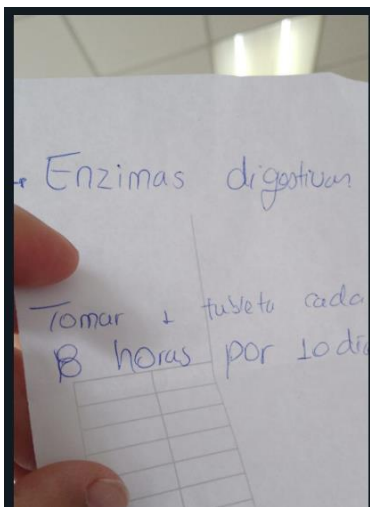 - Enzimas digestivas
Tomar 1 tableta cada
8 horas por 10 día